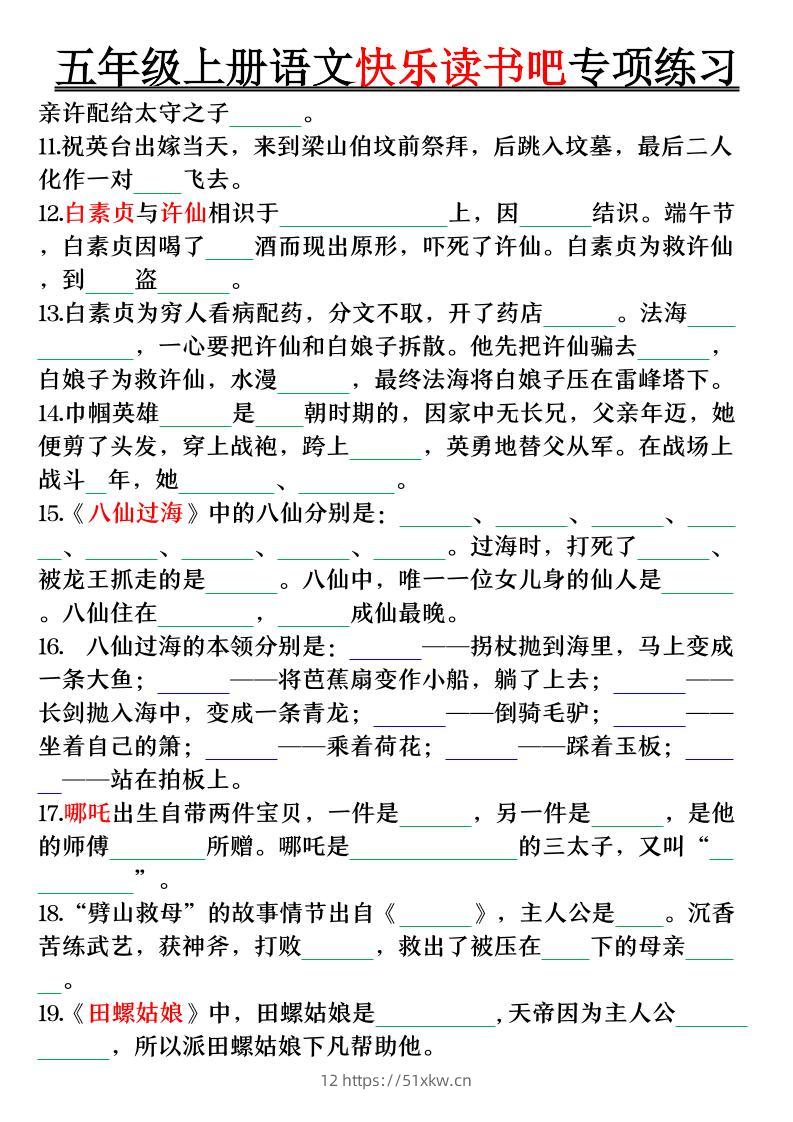 五年级上册语文快乐读书吧专项练习
亲许配给太守之子______。
11.祝英台出嫁当天，来到梁山伯坟前祭拜，后跳入坟墓，最后二人
化作一对____飞去。
12.白素贞与许仙相识于______________上，因______结识。端午节
，白素贞因喝了____酒而现出原形，吓死了许仙。白素贞为救许仙
，到____盗______。
13.白素贞为穷人看病配药，分文不取，开了药店______。法海____
________，一心要把许仙和白娘子拆散。他先把许仙骗去______，
白娘子为救许仙，水漫______，最终法海将白娘子压在雷峰塔下。
14.巾帼英雄______是____朝时期的，因家中无长兄，父亲年迈，她
便剪了头发，穿上战袍，跨上______，英勇地替父从军。在战场上
战斗__年，她________、________。
15.《八仙过海》中的八仙分别是：______、______、______、____
__、______、______、______、______。过海时，打死了______、
被龙王抓走的是______。八仙中，唯一一位女儿身的仙人是______
。八仙住在________，______成仙最晚。
16. 八仙过海的本领分别是：______——拐杖抛到海里，马上变成
一条大鱼；______——将芭蕉扇变作小船，躺了上去；______——
长剑抛入海中，变成一条青龙；______——倒骑毛驴；______——
坐着自己的箫；______——乘着荷花；______——踩着玉板；____
__——站在拍板上。
17.哪吒出生自带两件宝贝，一件是______，另一件是______，是他
的师傅________所赠。哪吒是______________的三太子，又叫“__
________”。
18.“劈山救母”的故事情节出自《______》，主人公是____。沉香
苦练武艺，获神斧，打败______，救出了被压在____下的母亲____
__。
19.《田螺姑娘》中，田螺姑娘是__________,天帝因为主人公______
______，所以派田螺姑娘下凡帮助他。
12 https://51xkw.cn